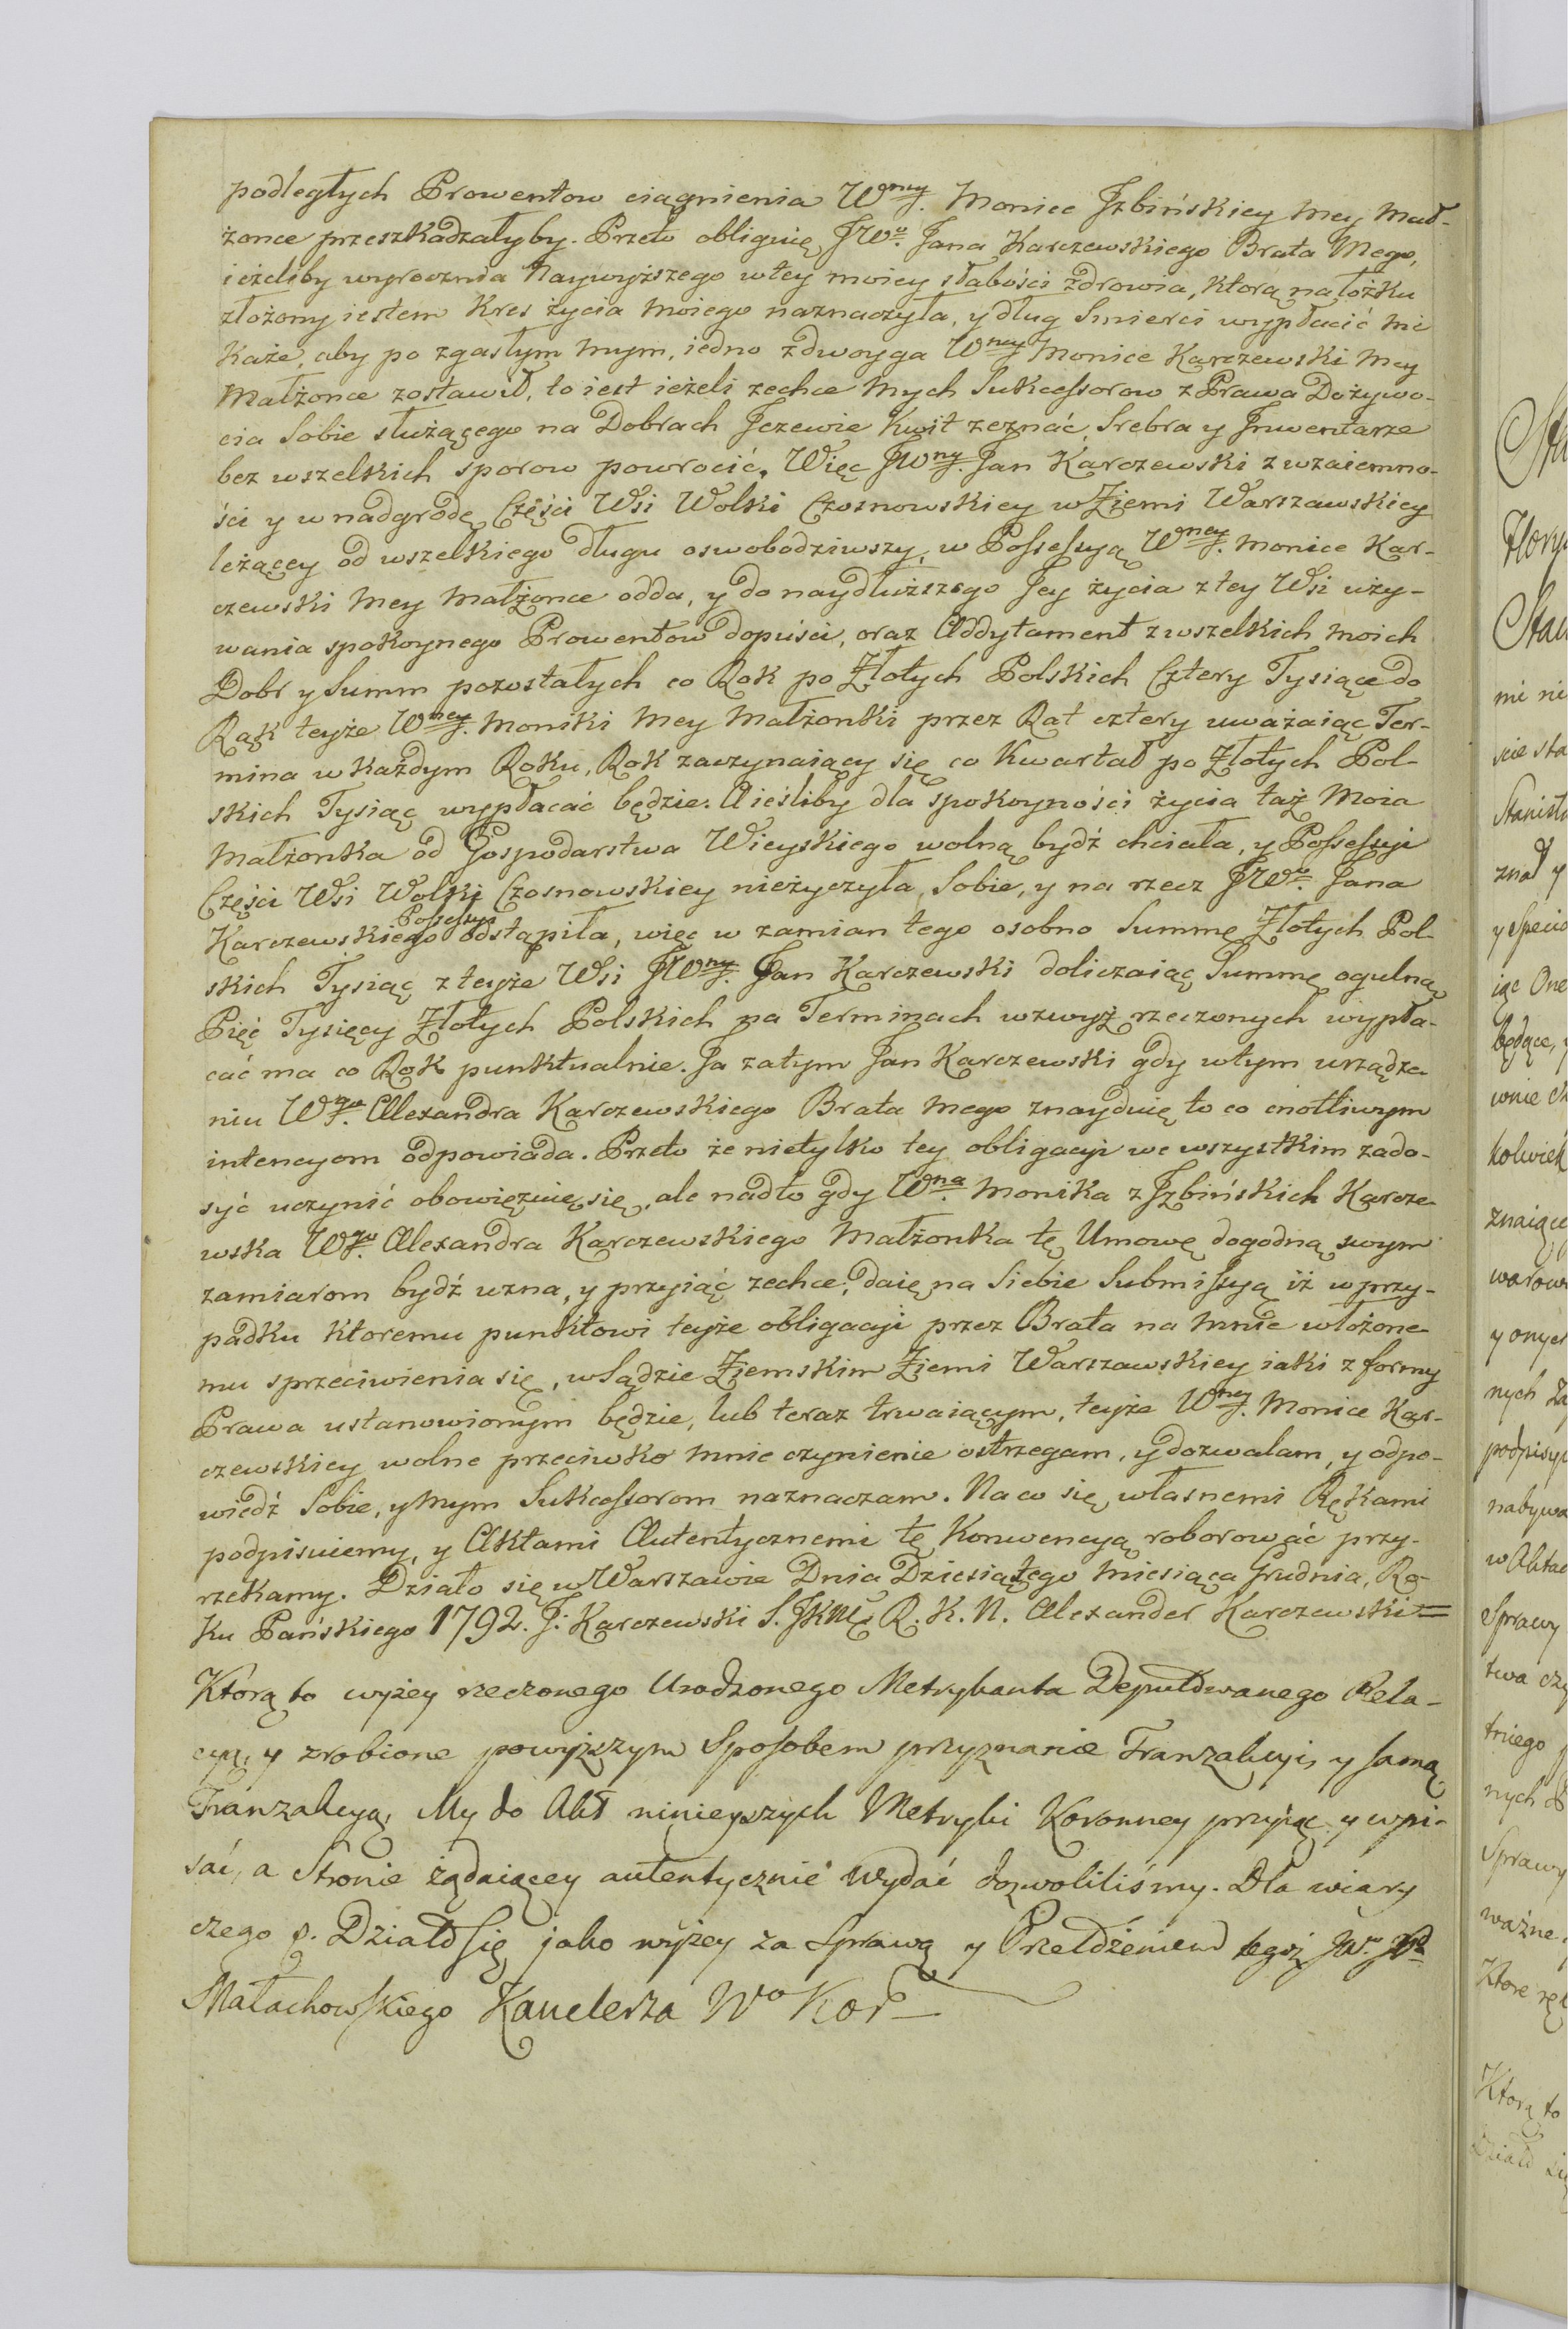 podległych Prowentow ciągnienia W<sup>ney</sup>. Monice Jzbińskiey Mey Mał-
żonce przeszkadzałyby. Przeto obliguię JW<sup>o</sup>. Jana Karczewskiego Brata Mego,
ieżeliby wyrocznia Naywyższego w tey moiey słabości zdrowia, ktorą na łożku
złożony iestem Kres życia moiego naznaczyła, y dług Smierci wypłacić mi
Każe, aby po zgasłym mym, iedno z dwoyga W<sup>ney</sup> Monice Karczewski Mey
Małżonce zostawił, to iest ieżeli zechce Mych Sukcessorow z Prawa Dożywo-
cia Sobie służącego na Dobrach Jczewie Kwit zeznać, Srebra y Jnwentarze
bez wszelkich sporow powrocić. Więc JW<sup>ny</sup>. Jan Karczewski z wzaiemno-
ści y w nadgrodę Części Wsi Wolki Czosnowskiey w Ziemi Warszawskiey
leżącey od wszelkiego długu oswobodziwszy, w Possessyą W<sup>ney</sup>. Monice Kar-
czewski Mey Małżonce odda, y do naydłuższego Jey życia z tey Wsi uży-
wania spokoynego Prowentow dopuści, oraz Addytament z wszelkich moich
Dobr y Summ pozostałych co Rok po Złotych Polskich Cztery Tysiące do
Rąk teyże W<sup>ney</sup>. Moniki Mey Małżonki przez Rat cztery uważaiąc Ter-
mina w każdym Roku, Rok zaczynaiący się co Kwartał po Złotych Pol-
skich Tysiąc wypłacać będzie. A ieśliby dla spokoyności życia taż Moia
Małżonka od Gospodarstwa Wieyskiego wolną bydź chciała, y Possessyi
Części Wsi Wolki Czosnowskiey nieżyczyła Sobie, y na rzecz JW<sup>o</sup>. Jana
Possessyi
Karczewskiego odstąpiła, więc w zamian tego osobno Summę Złotych Pol-
skich Tysiąc z teyże Wsi JW<sup>ny</sup>. Jan Karczewski doliczaiąc Summę ogulną
Pięć Tysięcy Złotych Polskich na Terminach wzwyż rzeczonych wypła-
cać ma co Rok punktualnie. Ja zatym Jan Karczewski gdy w tym urządze-
niu W<sup>go</sup>. Alexandra Karczewskiego Brata mego znayduię to co cnotliwym
intencyom odpowiada. Przeto że nietylko tey obligacyi we wszystkim zado-
syć uczynić obowięzuię się, ale nadto gdy W<sup>na</sup>. Monika z Jzbińskich Karcze-
wska W<sup>go</sup>. Alexandra Karczewskiego Małżonka tę Umowę dogodną swym
zamiarom bydź uzna, y przyiąć zechce, daię na Siebie Submissyą iż w przy-
padku Ktoremu punktowi teyże obligacyi przez Brata na mnie włożone-
mu sprzeciwienia się, w Sądzie Ziemskim Ziemi Warszawskiey iaki z formy
Prawa ustanowionym będzie, lub teraz trwaiącym, teyże W<sup>ney</sup>. Monice Kar-
czewskiey wolne przeciwko mnie czynienie ostrzegam, y dozwalam, y odpo-
wiedź Sobie, y Mym Sukcessorom naznaczam. Na co się własnemi Rękami
podpisuiemy, y Aktami Autentycznemi tę Konwencyą roborować przy-
rzekamy. Działo się w Warszawie Dnia Dziesiątego Miesiąca Grudnia, Ro-
ku Pańskiego 1792. J: Karczewski S. JKMci R. K. N. Alexander Karczewski =
Którą to wyżey rzeczonego Urodzonego Metrykanta Deputowanego Rela-
cyą, y zrobione powyższym Sposobem przyznanie Tranzakcyi, y samą
Tranzakcyą, My do Akt ninieyszych Metryki Koronney przyiąc y wpi-
sać, a Stronie żądaiącey autentycznie wydać dozwoliliśmy. Dla wiary
czego &. Działo się jako wyżey za Sprawą y Przełożeniem tegoż JW<sup>o</sup>
Małachowskiego Kanclerza W<sup>o</sup> Kor